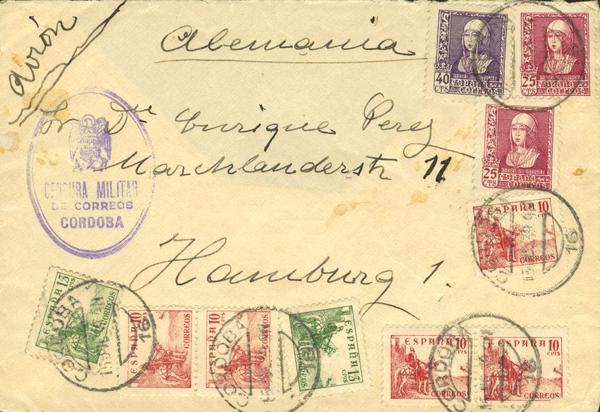 avión
Alemania
Sr Dr Enrique Perez
Marcklanderstr 11
Hamburg 1.
CENSURA MILITAR
DE CORREOS
CORDOBA
40
CTS
ESPAÑA
CORREOS
25
CTS
ESPAÑA
CORREOS
25
CTS
ESPAÑA
CORREOS
ESPAÑA 10
CORREOS
16
ESPAÑA 15
CORREOS
CORDOBA
16
ESPAÑA 10
CORREOS
ESPAÑA 10
CORREOS
CORDOBA
ESPAÑA 15
CTS
CORREOS
ESPAÑA 10
CTS
CORREOS
CORDOBA
ESPAÑA 10
CTS
CORREOS